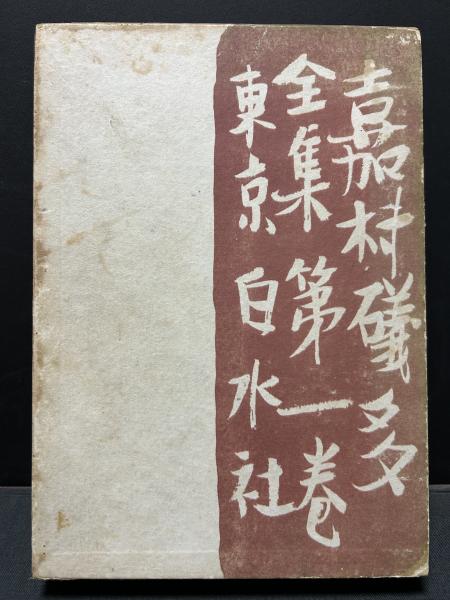 嘉村礒多
全集 第一卷
東京 白水社